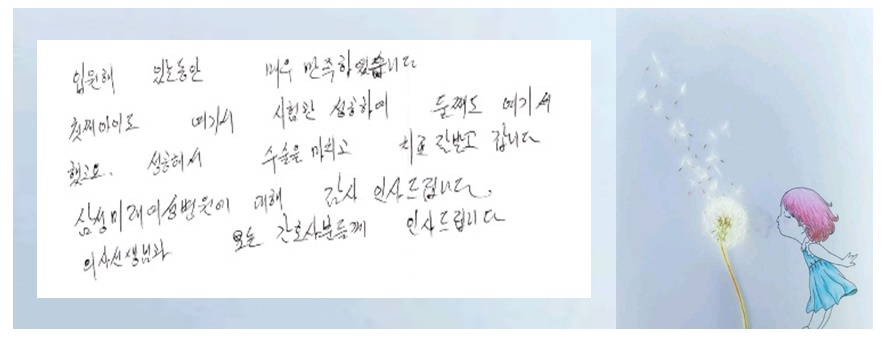 입원해 있는동안 매우 만족하였습니다
첫째아이도 여기서 시험관 성공하여 둘째도 여기서
했고요. 성공해서 수술을 마치고 치료 잘받고 갑니다
삼성미래여성병원에 대해 감사 인사드립니다.
의사선생님과 모든 간호사분들께 인사드립니다